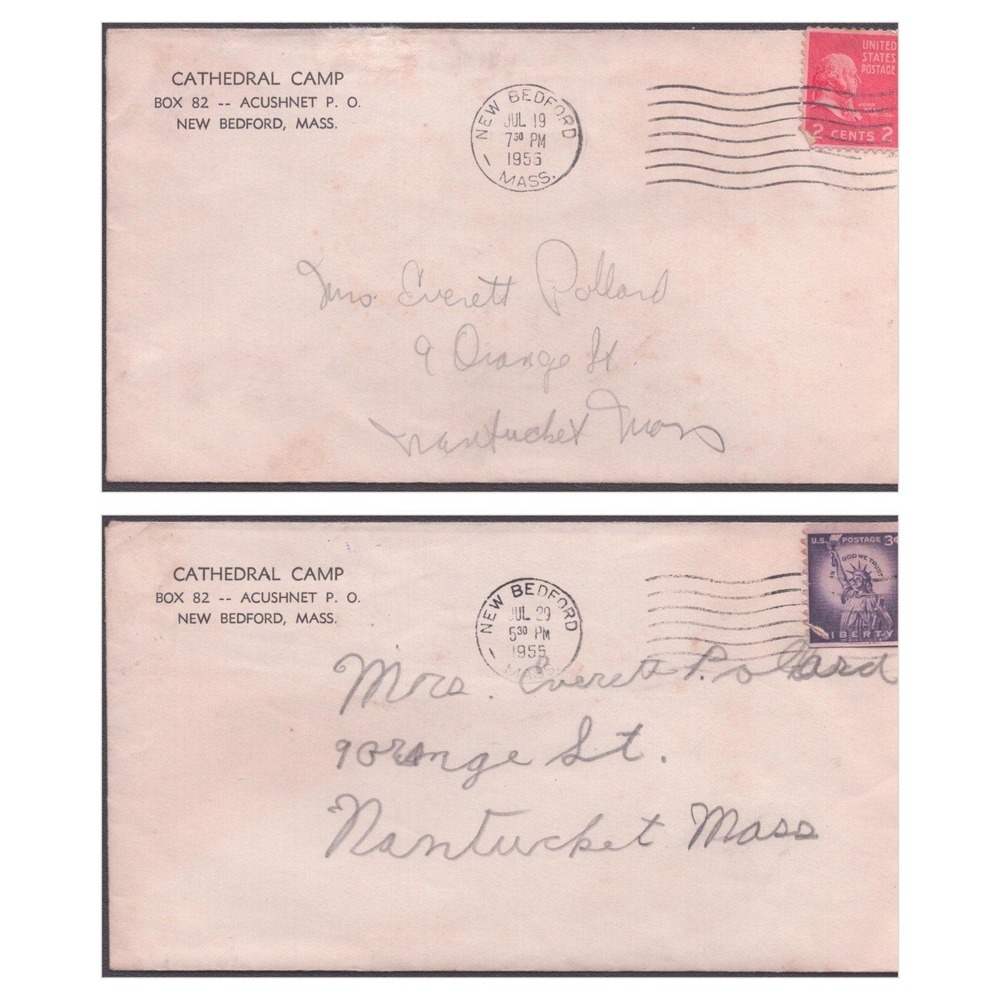 CATHEDRAL CAMP
BOX 82 -- ACUSHNET P. O.
NEW BEDFORD, MASS.
NEW BEDFORD
JUL 19
7 30 PM
1955
MASS.
UNITED
STATES
POSTAGE
JOHN
2 CENTS 2
Mrs. Everett Pollard
9 Orange St.
Nantucket Mass
CATHEDRAL CAMP
BOX 82 -- ACUSHNET P. O.
NEW BEDFORD, MASS.
NEW BEDFORD
JUL 29
5 30 PM
1955
MASS.
U.S. POSTAGE 3¢
IN GOD WE TRUST
LIBERTY
Mrs. Everett Pollard
9 Orange St.
Nantucket Mass